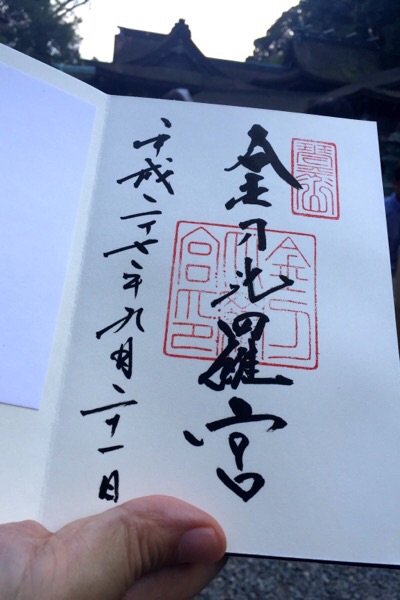 琴平山
金刀比羅宮
金刀比羅宮印
平成二十七年九月二十一日